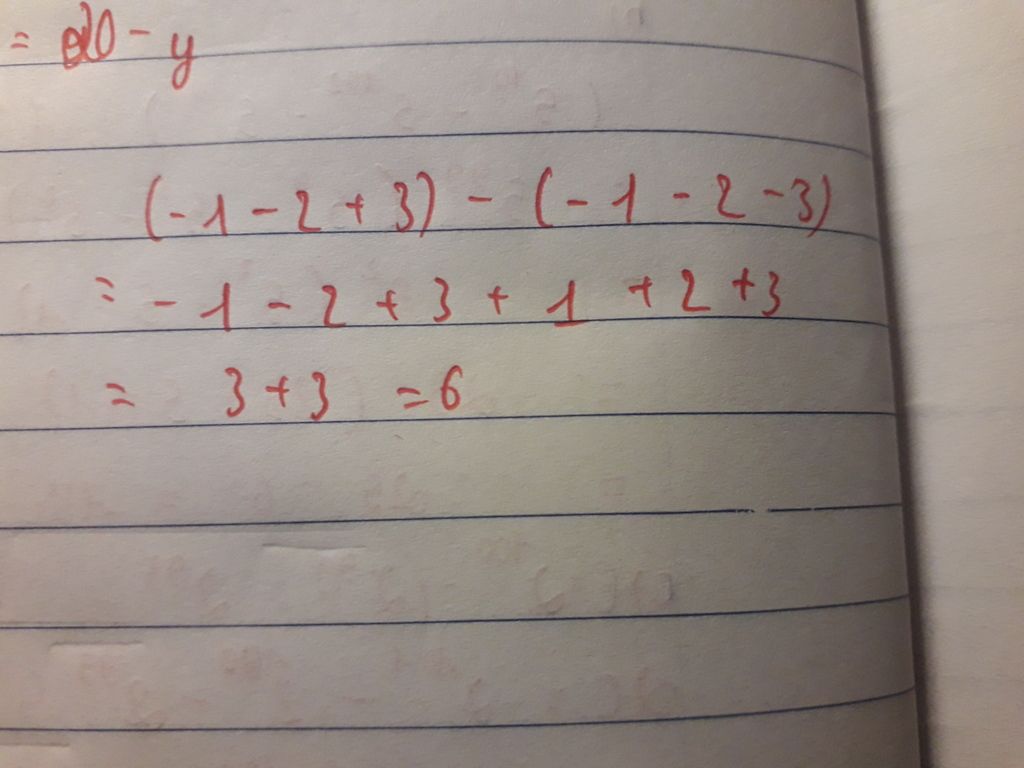 = 20 - y
(-1 - 2 + 3) - (-1 - 2 - 3)
= -1 - 2 + 3 + 1 + 2 + 3
= 3 + 3 = 6